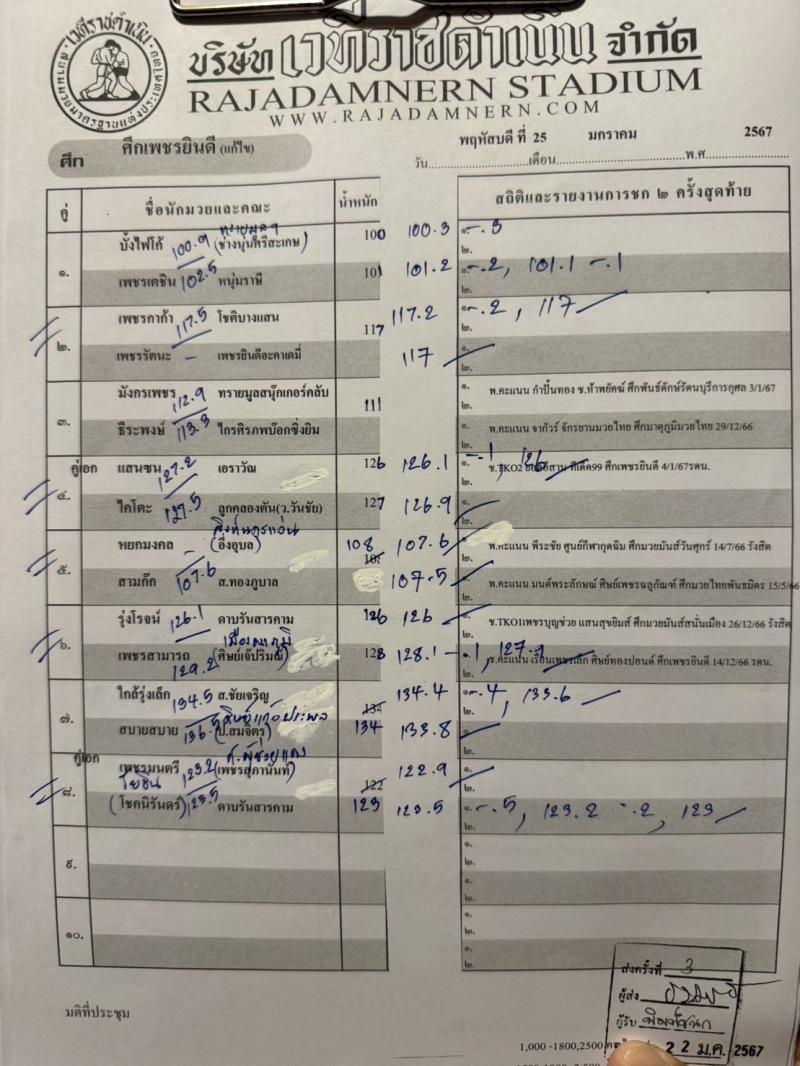 เวทีราชดำเนิน
บริษัท เวทีราชดำเนิน จำกัด
RAJADAMNERN STADIUM
WWW.RAJADAMNERN.COM
ศึก ศึกเพชรยินดี (แก้ไข)
วัน พฤหัสบดี ที่ 25 เดือน มกราคม พ.ศ. 2567
คู่ ชื่อนักมวยและคณะ น้ำหนัก สถิติและรายงานการชก ๒ ครั้งสุดท้าย
๑.
บั้งไฟโก้ 100.9 (ช่างนุ่นศรีสะเกษ) 100 100.3 ๑. -.3
๒.
เพชรเตชิน 102.5 หนุ่มราษี 101 101.2 ๑. -.2, 101.1 -.1
๒.
๒.
เพชรกาก้า 117.5 โชติบางแสน 117 117.2 ๑. -.2, 117
๒.
เพชรรัตนะ - เพชรยินดีอะคาเดมี่ 117 ๑.
๒.
๓.
มังกรเพชร 112.9 ทรายมูลสนุ๊กเกอร์คลับ 111 ๑. พ.คะแนน กำปั้นทอง ช.ห้าพยัคฆ์ ศึกพันธ์ดักษ์รัตนบุรีการกุศล 3/1/67
๒.
ธีระพงษ์ 113.3 ไกรศิรภพบ๊อกซิ่งยิม ๑. พ.คะแนน จากัวร์ จักรยานมวยไทย ศึกมาตุภูมิมวยไทย 29/12/66
๒.
คู่เอก
๔.
แสนซน 127.2 เอราวัณ 126 126.1 ๑. -.1, 126
๒. ช.TKO2 ศึกเพชรยินดี 4/1/67รดน.
ไคโตะ 127.5 ลูกคลองตัน(ว.วันชัย) 127 126.9 ๑.
๒.
๕.
หยกมงคล - (อึ่งอุบล) 108 107.6 ๑. พ.คะแนน พีระชัย ศูนย์กีฬากุดฉิม ศึกมวยมันส์วันศุกร์ 14/7/66 รังสิต
๒.
สามก๊ก 107.6 ส.ทองภูบาล 107.5 ๑. พ.คะแนน มนต์พระลักษณ์ ศิษย์เพชรฉลูกัณฑ์ ศึกมวยไทยพันธมิตร 15/5/66
๒.
๖.
รุ่งโรจน์ 126.1 ดาบรันสารคาม 126 126 ๑. ช.TKO1เพชรบุญช่วย แสนสุขยิมส์ ศึกมวยมันส์สนั่นเมือง 26/12/66 รังสิต
๒.
เพชรสามารถ 129.2 (ศิษย์เจ๊ปริมณ) 128 128.1 ๑. -.1, 127.9
๒. ช.คะแนน ศิษย์ทองปอนด์ ศึกเพชรยินดี 14/12/66 รดน.
๗.
ใกล้รุ่งเล็ก 134.5 ส.ชัยเจริญ 134.4 ๑. -.4, 133.6
๒.
สบายสบาย (ป.สมจิตร) 134 133.8 ๑.
๒.
คู่เอก
๘.
เพชรมนตรี 123.2 (เพชรสุภานันท์) 122 122.9 ๑.
๒.
(โชคนิรันดร์) 123.5 ดาบรันสารคาม 123 123.5 ๑. -.5, 123.2 -.2, 123
๒.
๙. ๑.
๒.
๑.
๒.
๑๐. ๑.
๒.
๑.
๒.
มติที่ประชุม
ส่งครั้งที่ 3
ผู้ส่ง
ผู้รับ พิมพ์ชนก
22 ม.ค. 2567
1,000 -1800,2500